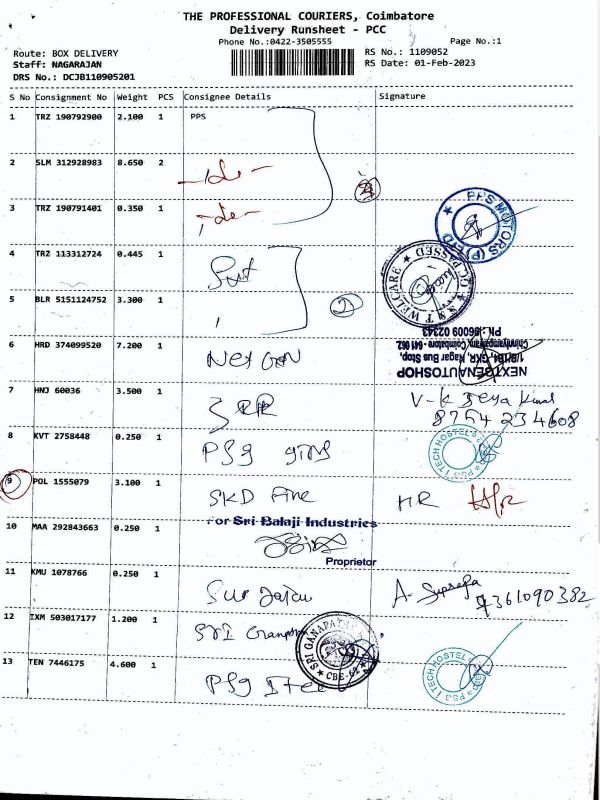 THE PROFESSIONAL COURIERS, Coimbatore
Delivery Runsheet - PCC
Phone No.:0422-3505555 Page No.:1
Route: BOX DELIVERY RS No.: 1109052
Staff: NAGARAJAN RS Date: 01-Feb-2023
DRS No.: DCJB110905201
S No Consignment No Weight PCS Consignee Details Signature
1 TRZ 190792900 2.100 1 PPS
2 SLM 312928983 8.650 2
3 TRZ 190791401 0.350 1
PPS MOTORS (P) LTD
4 TRZ 113312724 0.445 1
5 BLR 5151124752 3.300 1 2
PH : 96009 02343
Chinniyampalayam, Coimbatore - 641 062.
GKR Nagar Bus Stop,
NEXTGENAUTOSHOP
6 HRD 374099520 7.200 1 Nex GeN
7 HNJ 60036 3.500 1 V-K Jeya Kumar
8754234608
8 KVT 2758448 0.250 1 PSg girls
TECH HOSTEL
9 POL 1555079 3.100 1 SKD Fine HR
For Sri Balaji Industries
10 MAA 292843663 0.250 1
Proprietor
11 KMU 1078766 0.250 1 A.
9361090382
12 IXM 503017177 1.200 1 SRI
SRI GANAPATHY
CBE-62
13 TEN 7446175 4.600 1 PSg ITech
TECH HOSTEL